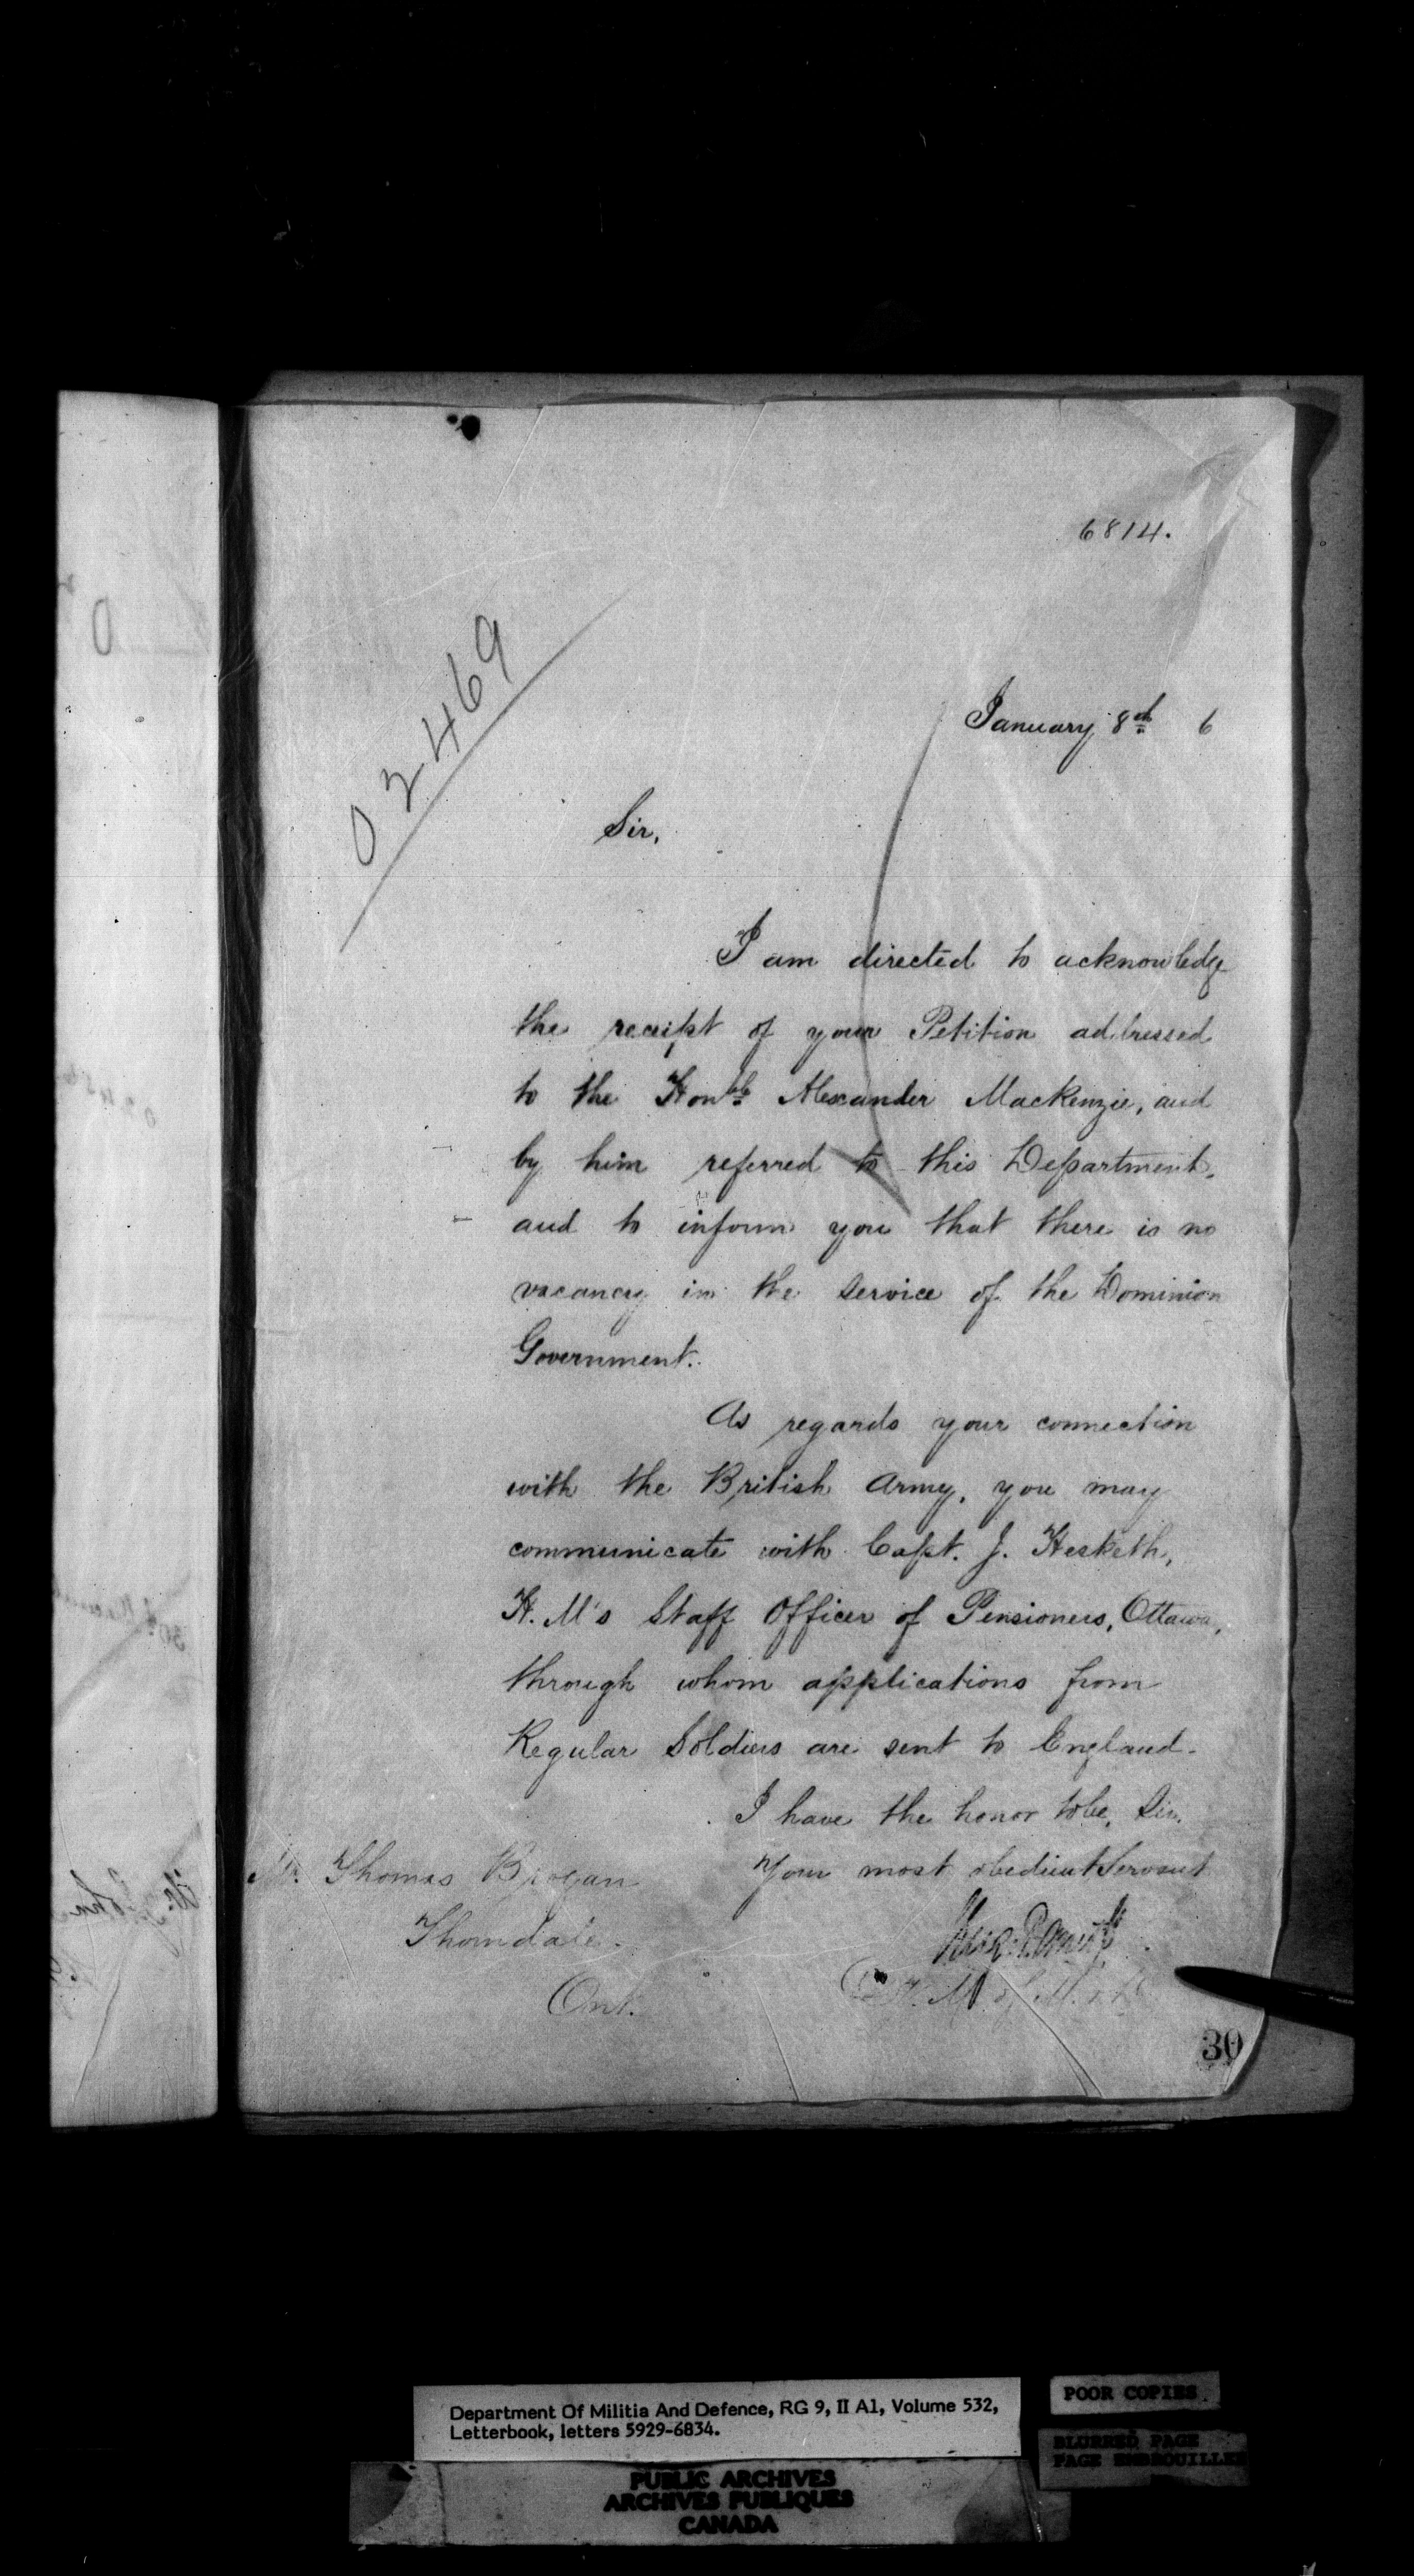 6814.
02469
January 8th 6
Sir,
I am directed to acknowledge
the receipt of your Petition addressed
to the Honble Alexander Mackenzie, and
by him referred to this Department,
and to inform you that there is no
vacancy in the service of the Dominion
Government.
As regards your connection
with the British Army, you may
communicate with Capt. J. Hesketh,
H. M's Staff Officer of Pensioners, Ottawa,
through whom applications from
Regular Soldiers are sent to England.
I have the honor to be, Sir,
Your most obedient Servant
Mr. Thomas Brogan
Thorndale.
Ont.
M. of M. & D.
30
Department Of Militia And Defence, RG 9, II A1, Volume 532,
Letterbook, letters 5929-6834.
POOR COPIES
BLURRED PAGE
PAGE EMBROUILLEE
PUBLIC ARCHIVES
ARCHIVES PUBLIQUES
CANADA